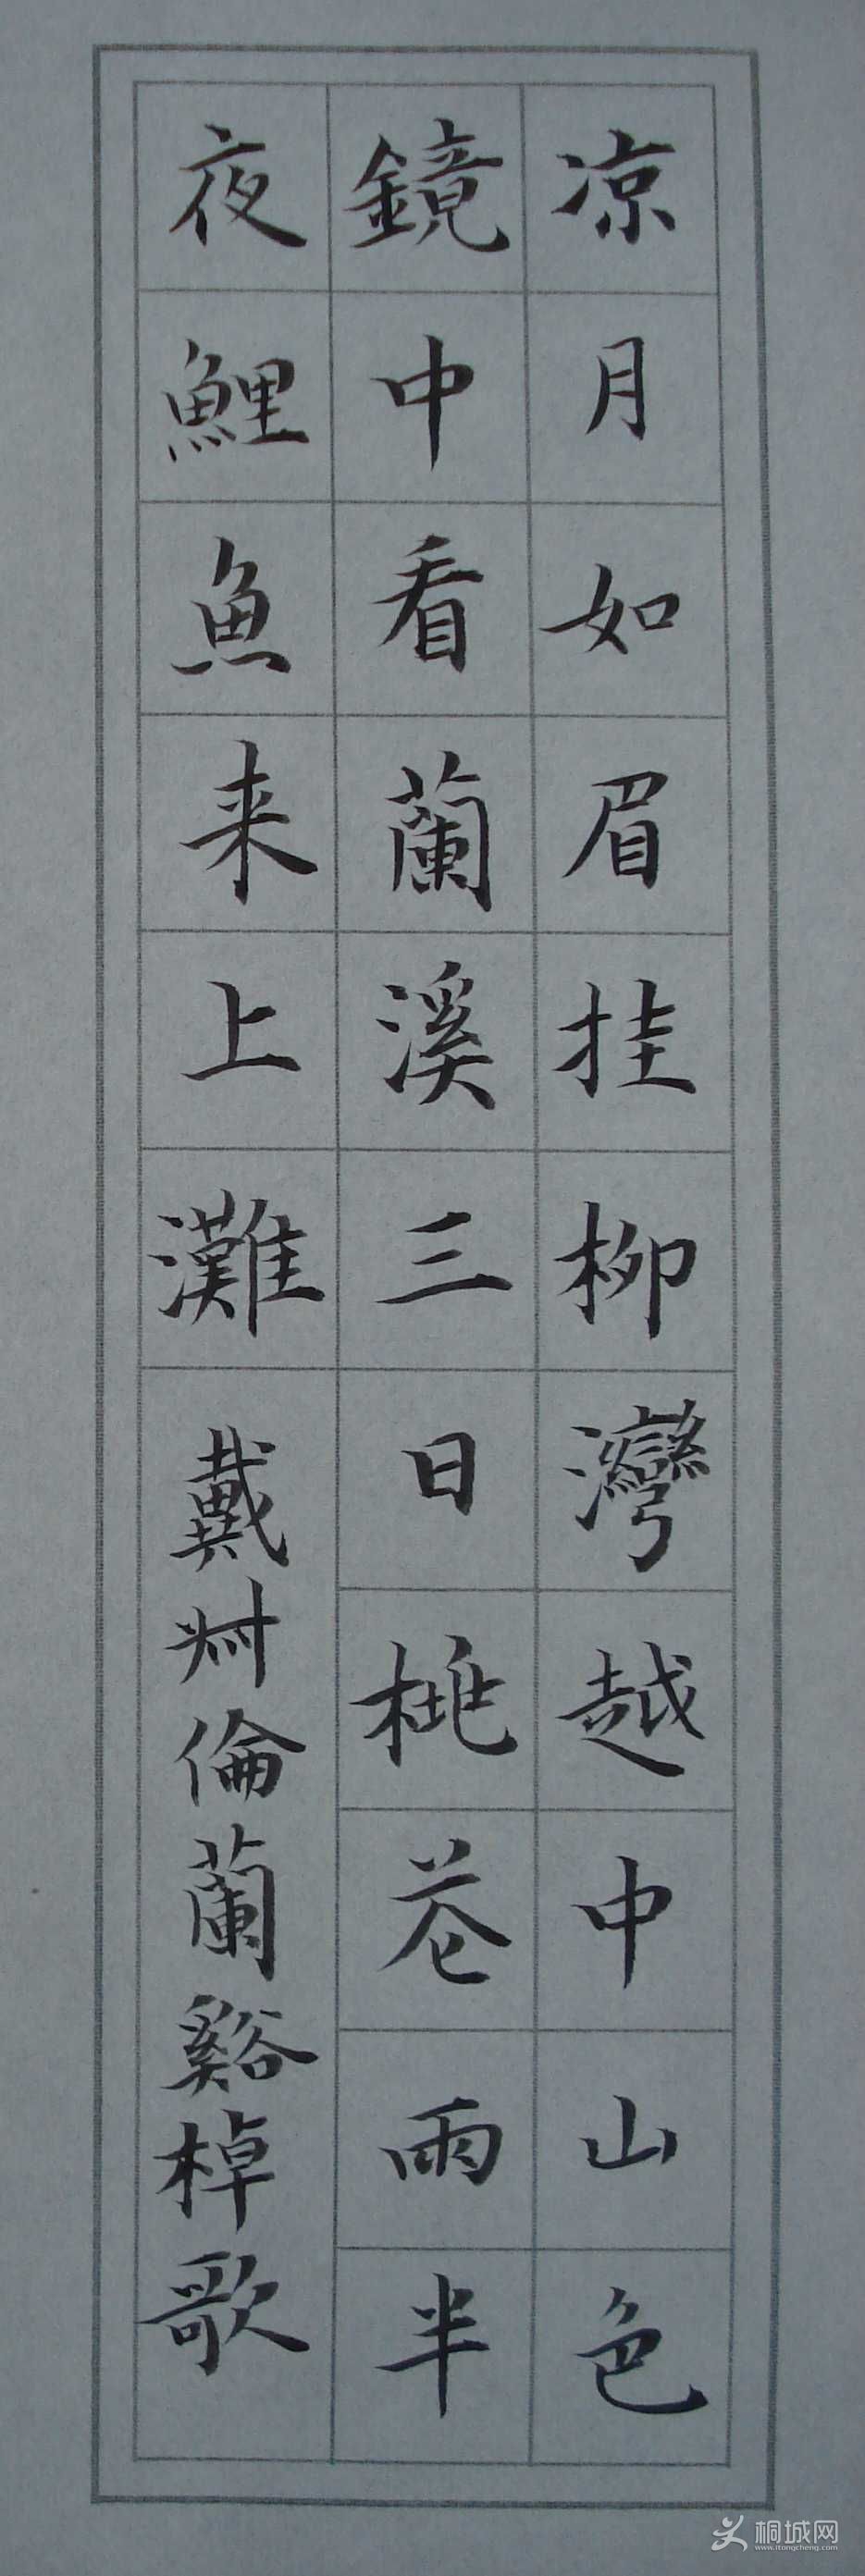 凉月如眉挂柳灣越中山色
鏡中看蘭溪三日桃花雨半
夜鯉魚来上灘
戴叔倫蘭谿棹歌
桐城网
www.itongcheng.com